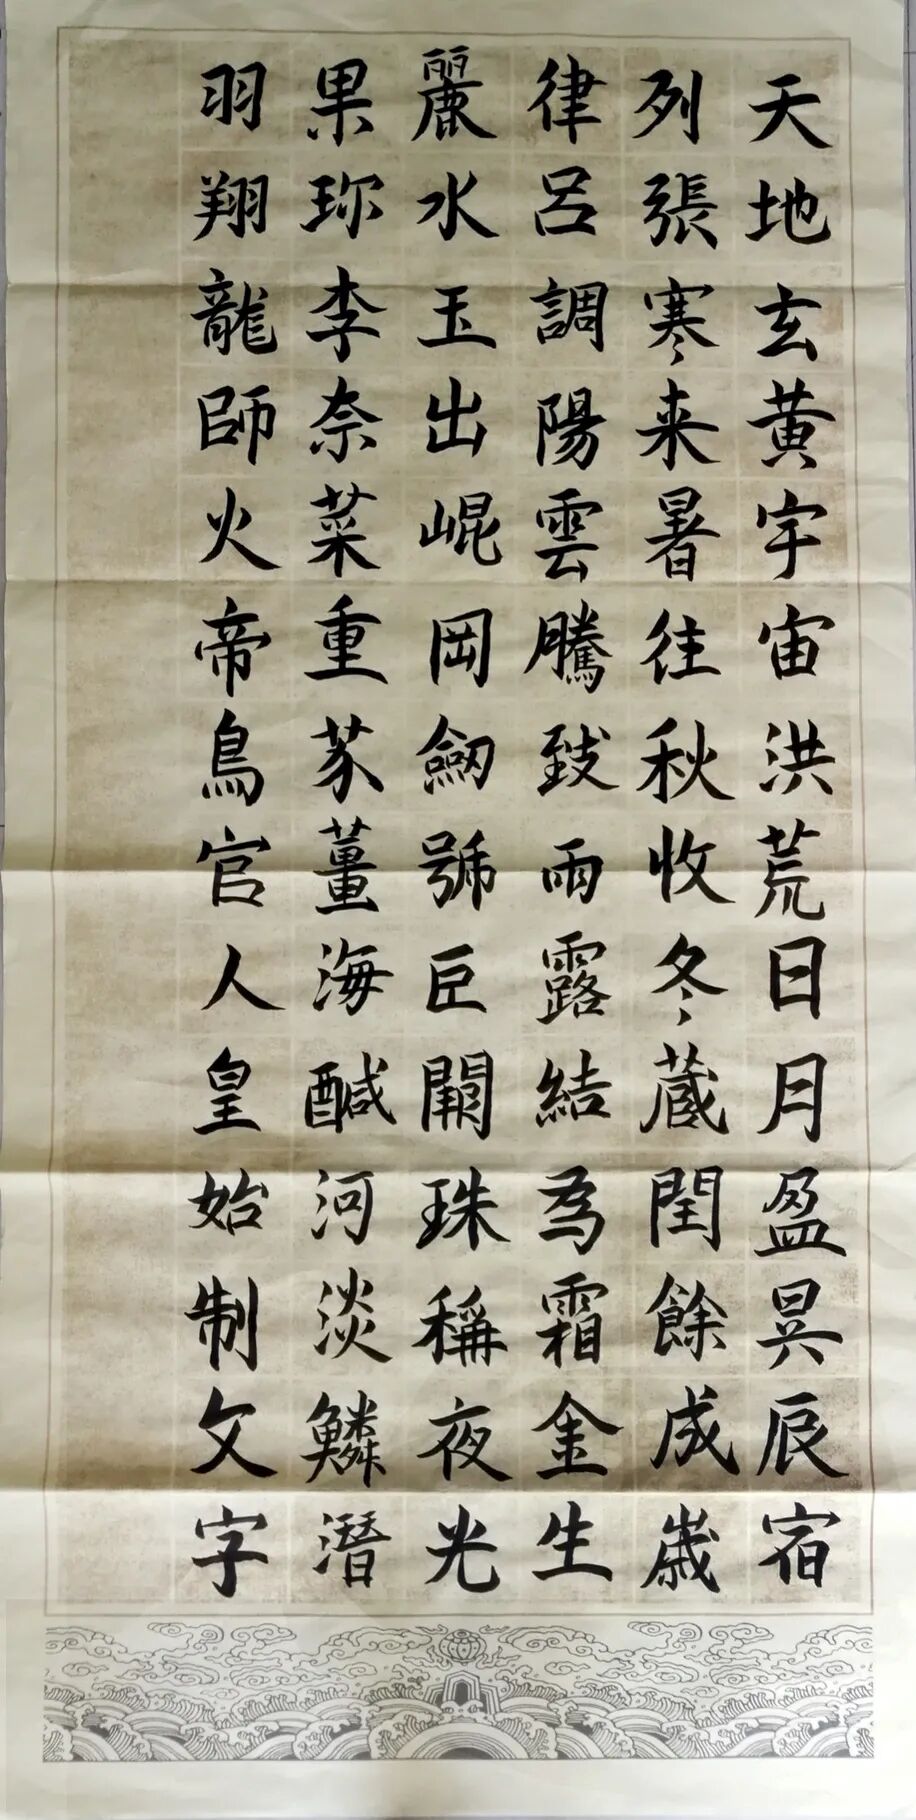 天地玄黄宇宙洪荒日月盈昃辰宿
列張寒来暑往秋收冬蔵閏餘成歲
律呂調陽雲騰致雨露結為霜金生
麗水玉出崐岡劒號巨闕珠稱夜光
果珎李柰菜重芥薑海醎河淡鱗潛
羽翔龍師火帝鳥官人皇始制文字